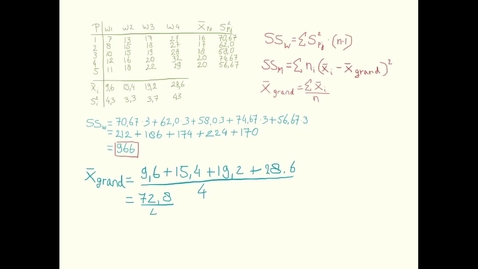 P w1 w2 w3 w4 X̄Pn S²Pn
1 7 13 17 27 16 70,67
2 8 15 18 27 17 62,0
3 10 15 19 28 18 58,0
4 12 16 20 32 20 74,67
5 11 18 22 29 20 56,67
X̄i 9,6 15,4 19,2 28,6
S²i 4,3 3,3 3,7 4,3
SSw = ΣS²Pi · (n-1)
SSM = Σ ni (x̄i - x̄grand)²
X̄grand = Σx̄i / n
SSw = 70,67·3 + 62,0·3 + 58,0·3 + 74,67·3 + 56,67·3
= 212 + 186 + 174 + 224 + 170
= 966
X̄grand = 9,6 + 15,4 + 19,2 + 28.6 / 4
= 72,8 /